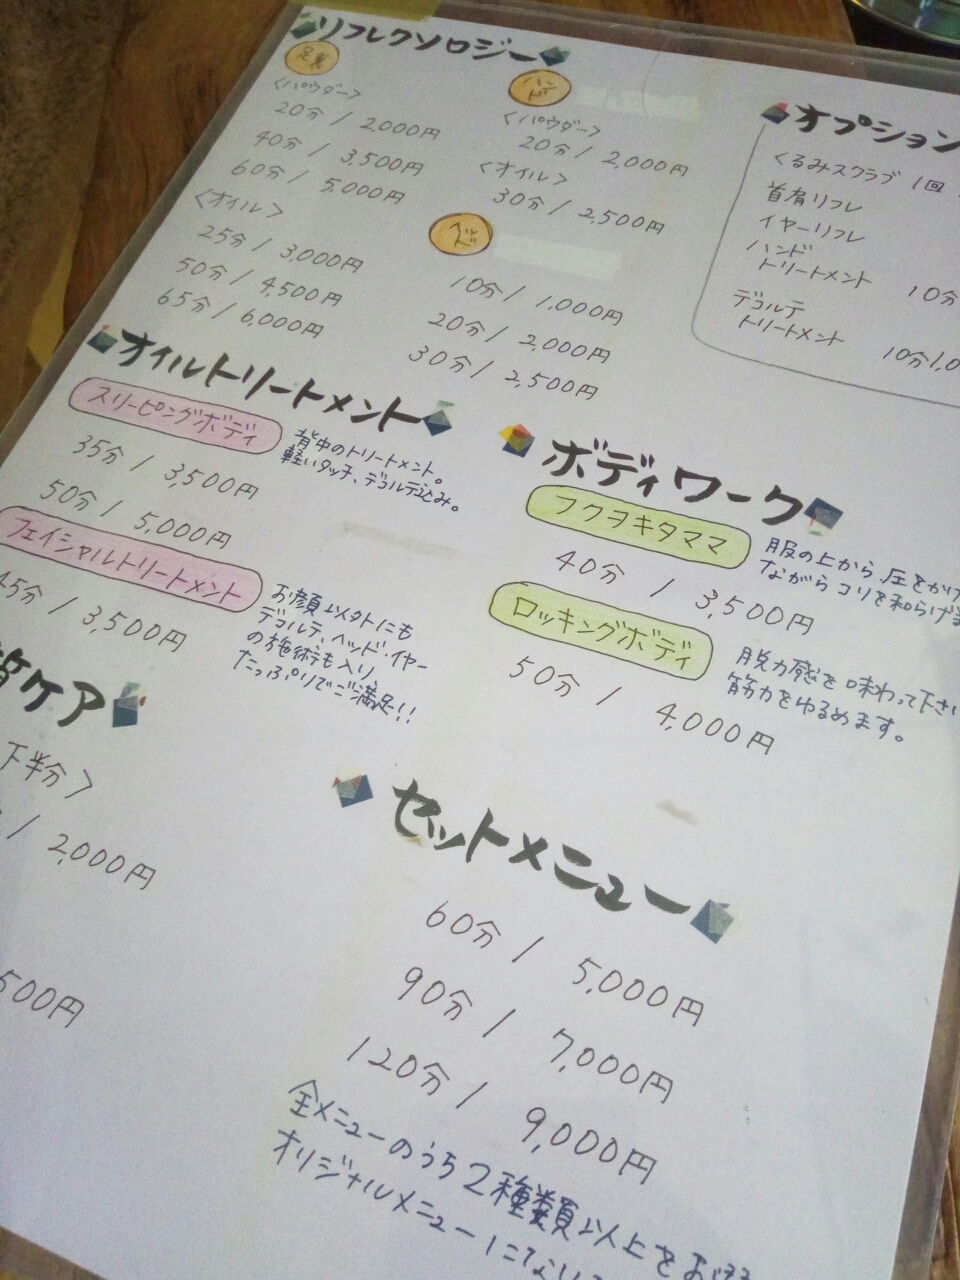 リフレクソロジー
足裏
<パウダー>
20分 / 2,000円
40分 / 3,500円
60分 / 5,000円
<オイル>
25分 / 3,000円
50分 / 4,500円
65分 / 6,000円
ハンド
<パウダー>
20分 / 2,000円
<オイル>
30分 / 2,500円
ヘッド
10分 / 1,000円
20分 / 2,000円
30分 / 2,500円
オプション
くるみスクラブ 1回
首肩リフレ
イヤーリフレ
ハンド
トリートメント 10分
デコルテ
トリートメント 10分1,0
オイルトリートメント
スリーピングボディ
背中のトリートメント。
軽いタッチ、デコルテ込み。
35分 / 3,500円
50分 / 5,000円
フェイシャルトリートメント
お顔以外にも
デコルテ、ヘッド・イヤー
の施術も入り、
たっぷりでご満足!!
45分 / 3,500円
ボディワーク
フクヲキタママ
服の上から圧をかけ
ながらコリを和らげ
40分 / 3,500円
ロッキングボディ
脱力感を味わって下さい
筋力をゆるめます。
50分 / 4,000円
ケア
下半分>
/ 2,000円
500円
セットメニュー
60分 / 5,000円
90分 / 7,000円
120分 / 9,000円
全メニューのうち2種類以上を
オリジナルメニュー